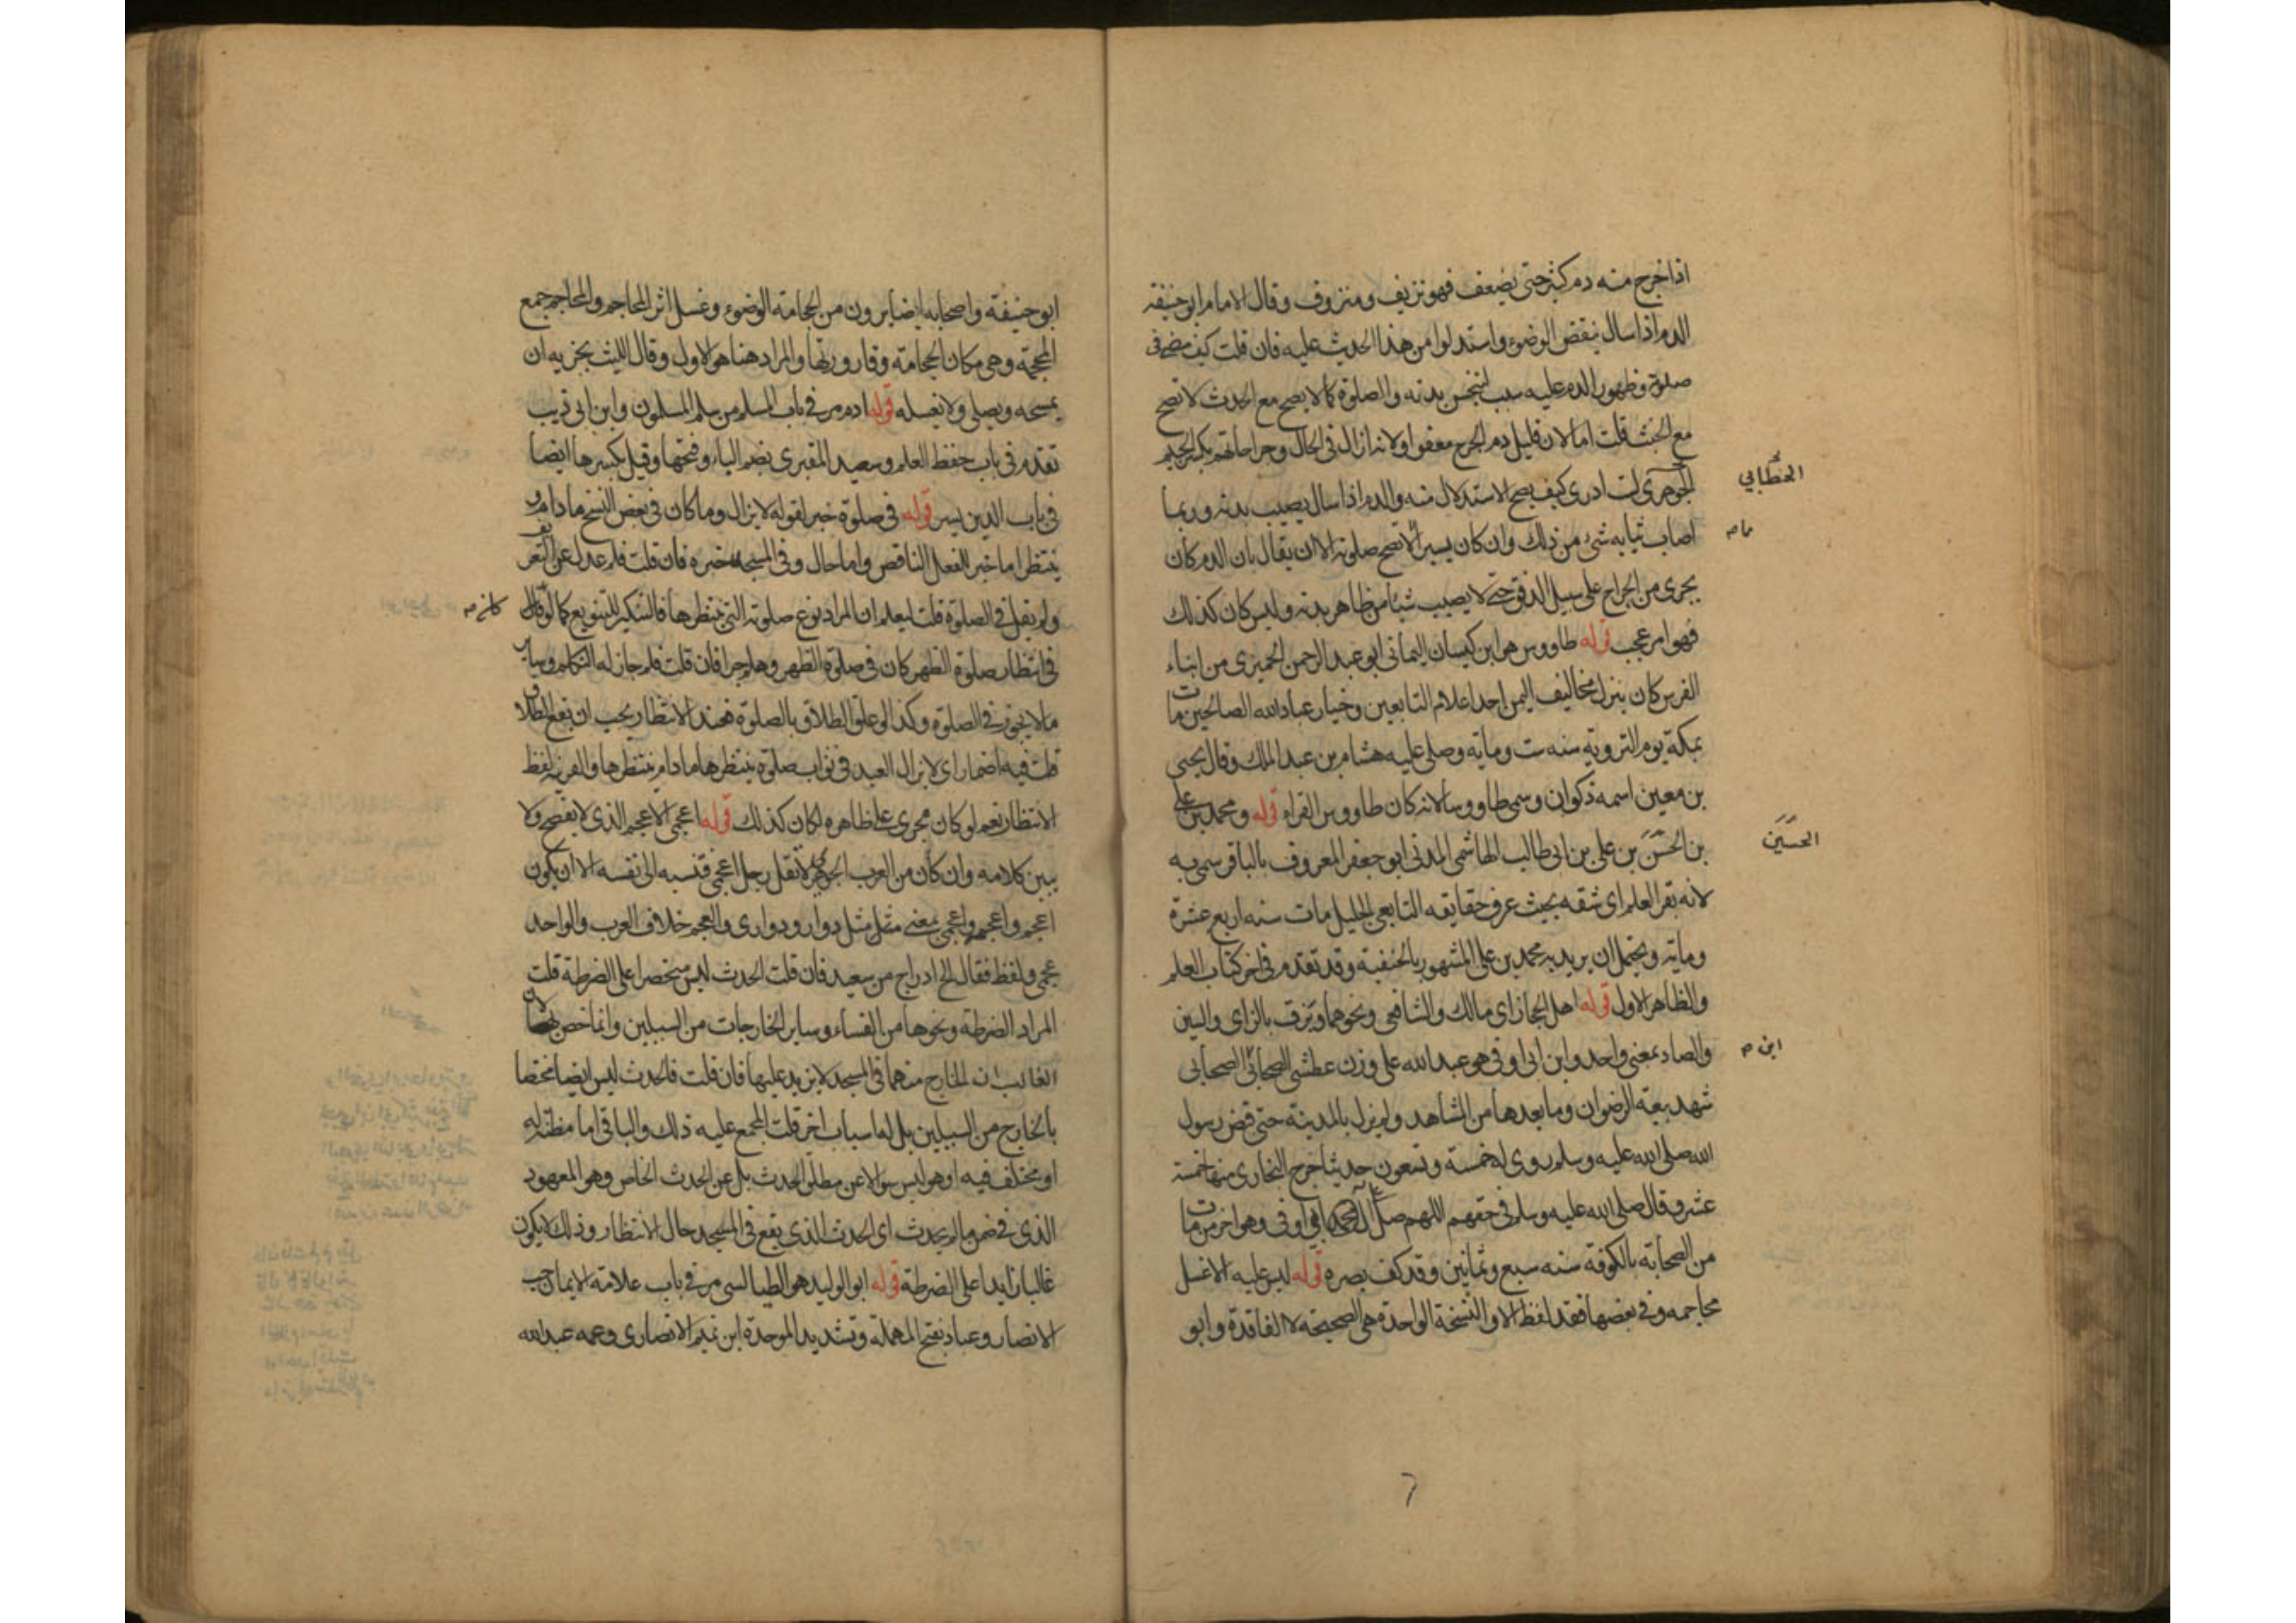 اذا خرج منه دم كثير حتى يضعف فهو نزيف ومنزوف وقال الامام ابو حنيفة
الدم اذا سال ينقض الوضوء واستدلوا من هذا الحديث عليه فان قلت كيف مضى في
صلوته وظهور الدم عليه سبب لتنجس بدنه والصلوة كما لا يصح مع الحدث لا تصح
مع الخبث قلت اما لان قليل دم الجرح معفو او لانه ازال في الحال وجراحاتهم بكسر الجيم
الجوهري لست ادري كيف يصح الاستدلال منه والدم اذا سال يصيب بدنه وربما
الخطابي
اصاب ثيابه شئ من ذلك وان كان يسيرا لا تصح صلوته الا ان يقال بان الدم كان
يجري من الجراح على سبيل الدفق حتى لا يصيب شيئا من ظاهر بدنه وليس كان كذلك
فهو امر عجب قوله طاووس هو ابن كيسان اليماني ابو عبد الرحمن الحميري من ابناء
الفرس كان ينزل مخاليف اليمن احد اعلام التابعين وخيار عباد الله الصالحين مات
بمكة يوم التروية سنه ست وماية وصلى عليه هشام بن عبد الملك وقال يحيى
بن معين اسمه ذكوان وسمي طاووسا لانه كان طاووس القراء قوله ومحمد بن علي
بن الحسن بن علي بن ابي طالب الهاشمي المدني ابو جعفر المعروف بالباقر سمي به
الحسين
لانه بقر العلم اي شقه بحيث عرف حقايقه التابعي الجليل مات سنه اربع عشرة
وماية ويحتمل ان يريد به محمد بن علي المشهور بالحنفية وقد تقدم في اخر كتاب العلم
والظاهر الاول قوله اهل الحجاز اي مالك والشافعي ونحوهما وبزق بالزاي والسين
والصاد بمعنى واحد وابن ابي اوفى هو عبد الله على وزن عطشى الصحابي الصحابي
ابن
شهد بيعة الرضوان وما بعدها من المشاهد ولم يزل بالمدينة حتى قبض رسول
الله صلى الله عليه وسلم روي له خمسة وتسعون حديثا خرج البخاري منها خمسة
عشر وقال صلى الله عليه وسلم في حقهم اللهم صل على آل ابي اوفى وهو اخر من مات
من الصحابة بالكوفة سنه سبع وثمانين وقد كف بصره قوله ليس عليه الا غسل
محاجمه وفي بعضها فقد لفظ الا والنسخة الواحدة هي الصحيحة لا الفاقدة وابو
ابو حنيفة واصحابه ايضا يرون من الحجامة الوضوء وغسل اثر المحاجم والمحاجم جمع
المحجمة وهي مكان الحجامة وقارورتها والمراد هنا هو الاول وقال الليث يجزيه ان
يمسحه ويصلي ولا يغسله قوله ادم مر في باب المسلم من سلم المسلمون وابن ابي ذيب
تقدم في باب حفظ العلم وسعيد المقبري بضم الباء وفتحها وقيل بكسرها ايضا
في باب الدين يسر قوله في صلوة خبر لقوله لا يزال وما كان في بعض النسخ ما دام و
ينتظر اما خبر للفعل الناقص واما حال وفي المسجد خبره فان قلت فلم عدل عن التعريف
ولم يقل في الصلوة قلت ليعلم ان المراد نوع صلوته التي ينتظرها فالتنكير للتنويع كما لو قال
في انتظار صلوة الظهر كان في صلوة الظهر وهلم جرا فان قلت فلم جاز له التكلم وساير
ما لا يجوز في الصلوة وكذا لو علق الطلاق بالصلوة فعند الانتظار يجب ان يقع الطلاق
قلت فيه اضمار اي لا يزال العبد في ثواب صلوة ينتظرها ما دام ينتظرها والقرينة لفظ
الانتظار نعم لو كان مجرى على ظاهره لكان كذلك قوله اعجمي الاعجم الذي لا يفصح ولا
يبين كلامه وان كان من العرب الجوهري لا تقل رجل اعجمي فتنسبه الى نفسه الا ان يكون
اعجم واعجمي بمعنى مثل دوار ودواري والعجم خلاف العرب والواحد
عجمي ولفظ فقال الخ ادراج من سعيد فان قلت الحدث ليس منحصرا على الضرطة قلت
المراد الضرطة ونحوها من الفساء وساير الخارجات من السبيلين وانما خص بها لان
الغالب ان الخارج منهما في المسجد لا يزيد عليها فان قلت فالحدث ليس ايضا مختصا
بالخارج من السبيلين بل له اسباب اخر قلت المجمع عليه ذلك والباقي اما مظنة له
او مختلف فيه او هو ليس سوالا عن مطلق الحدث بل عن الحدث الخاص وهو المعهود
الذي في ضمن ما لم يحدث اي الحدث الذي يقع في المسجد حال الانتظار وذلك لا يكون
غالبا زايدا على الضرطة قوله ابو الوليد هو الطيالسي مر في باب علامة الايمان حب
الانصار وعباد بفتح المهملة وتشديد الموحدة ابن تميم الانصاري وعمه عبد الله